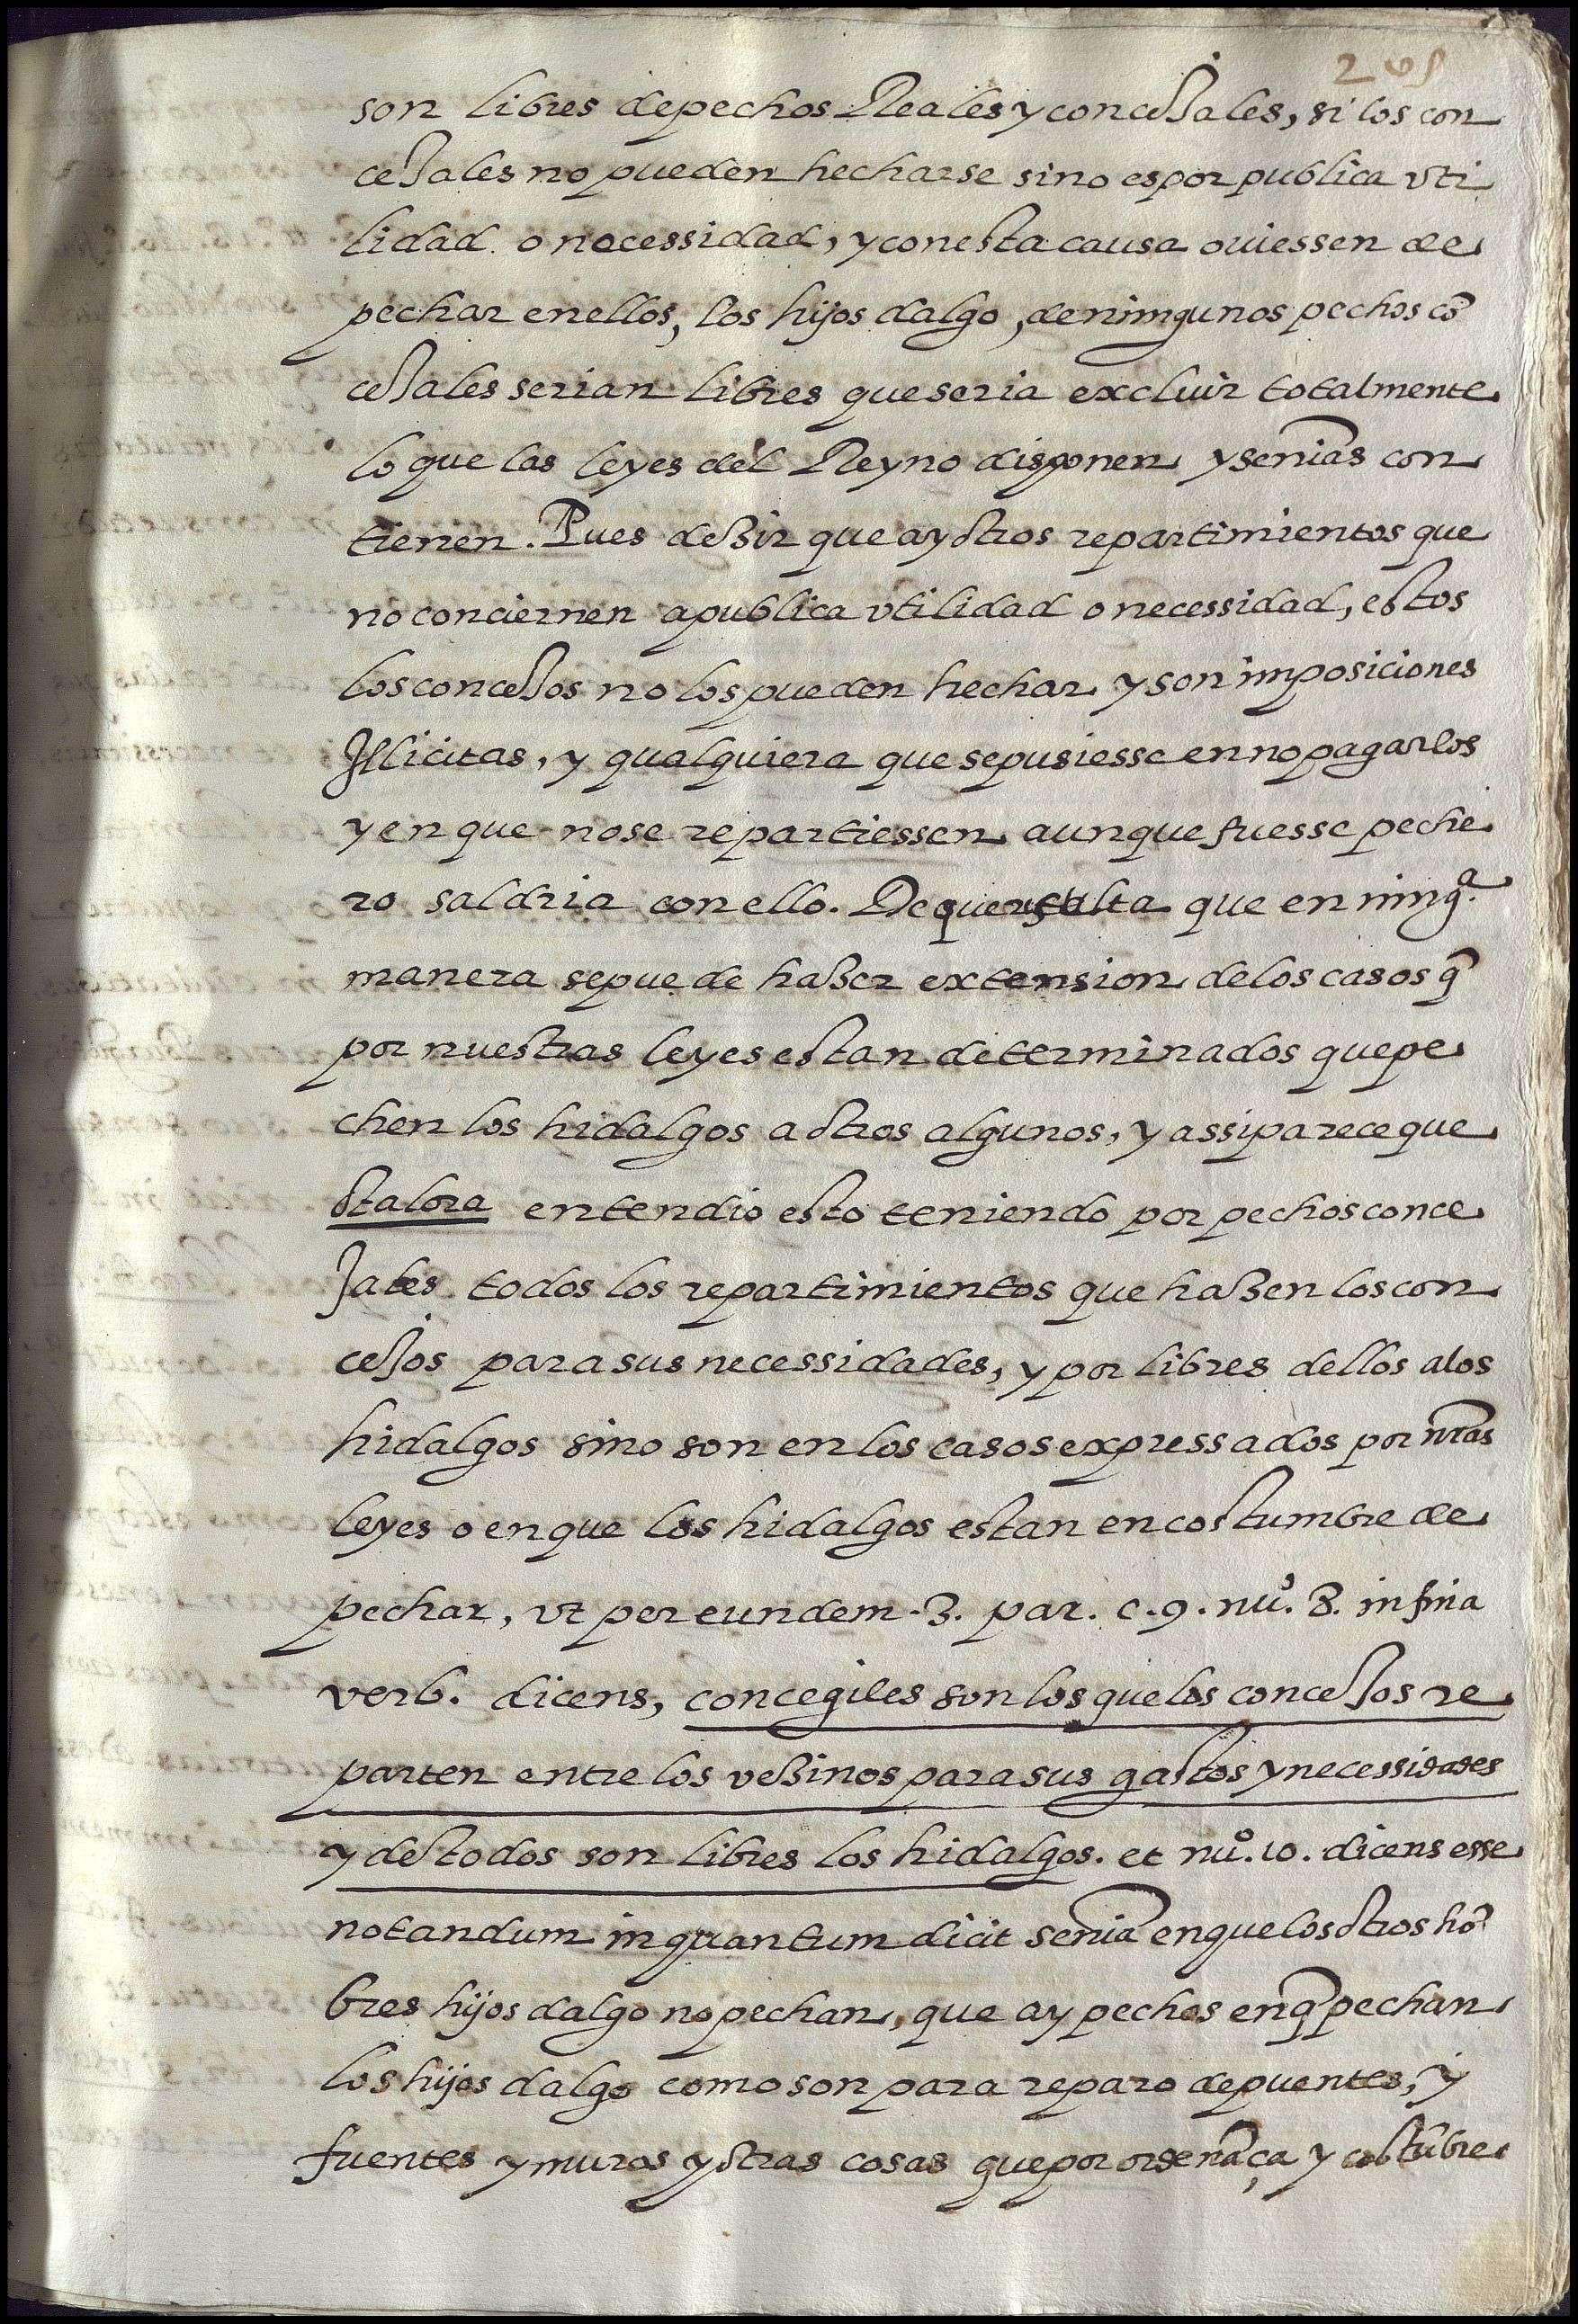 205
son libres de pechos Reales y concejales, si los con
cejales no pueden hecharse sino es por publica vti
lidad o necessidad, y con esta causa ouiessen de
pechar en ellos, los hijos dalgo, de ningunos pechos cõ
cejales serian libres que seria excluir totalmente
lo que las leyes del Reyno disponen y senias con
tienen. Pues dezir que ay otros repartimientos que
no conciernen a publica vtilidad o necessidad, estos
los concejos no los pueden hechar y son imposiciones
Illicitas, y qualquiera que se pusiesse en no pagarlos
y en que no se repartiessen aunque fuesse peche
ro saldria con ello. De que resulta que en ning.ª
manera se puede hazer extension de los casos q̃
por nuestras leyes estan determinados que pe
chen los hidalgos a otros algunos, y assi parece que
otalora entendio esto teniendo por pechos conce
jales todos los repartimientos que hazen los con
cejos para sus necessidades, y por libres dellos a los
hidalgos sino son en los casos expressados por nr̃as
leyes o en que los hidalgos estan en costumbre de
pechar, vt per eundem .3. par. c. 9. nu.º 8. in fin a
verb. dicens, concegiles son los que los concejos re
parten entre los vezinos para sus gastos y necessidades
y destodos son libres los hidalgos. et nu.º 10. dicens esse
notandum in quantum dicit senia en que los otros hõ
bres hijos dalgo no pechan, que ay pechos en q̃ pechan
los hijos dalgo como son para reparo de puentes, y
fuentes y muros y otras cosas que por ordenãça y costũbre